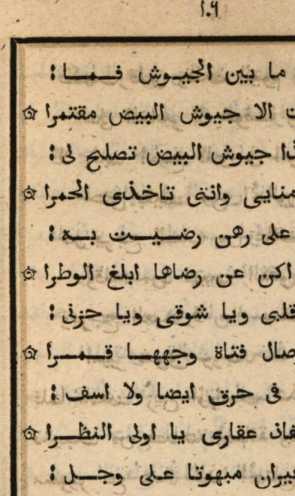 ١٠٩
ما بين الجيوش فما :
ت الا جيوش البيض مقتمرا
ذا جيوش البيض تصلح لى :
منايى وانتى تاخذى الحمرا
على رهن رضيت به :
اكن عن رضاها ابلغ الوطرا
قلبى ويا شوقى ويا حزنى :
صال فتاة وجهها قمرا
فى حرق ايضا ولا اسف :
فاذ عقارى يا اولى النظرا
يران مبهوتا على وجل :